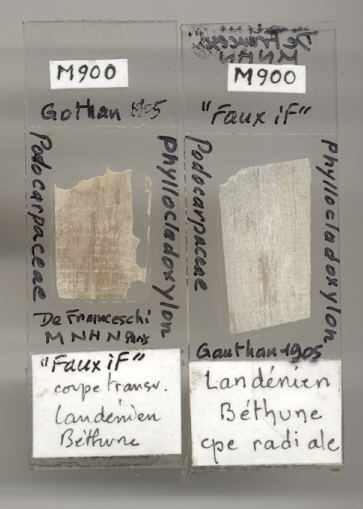 M900
Gothan 1905
Podocarpaceae
Phyllocladoxylon
De Franceschi
MNHN Paris
"Faux iF"
coupe transv.
Landénien
Béthune
De Franceschi
MNHN
M900
"Faux iF"
Podocarpaceae
Phyllocladoxylon
Gauthan 1905
Landénien
Béthune
cpe radiale